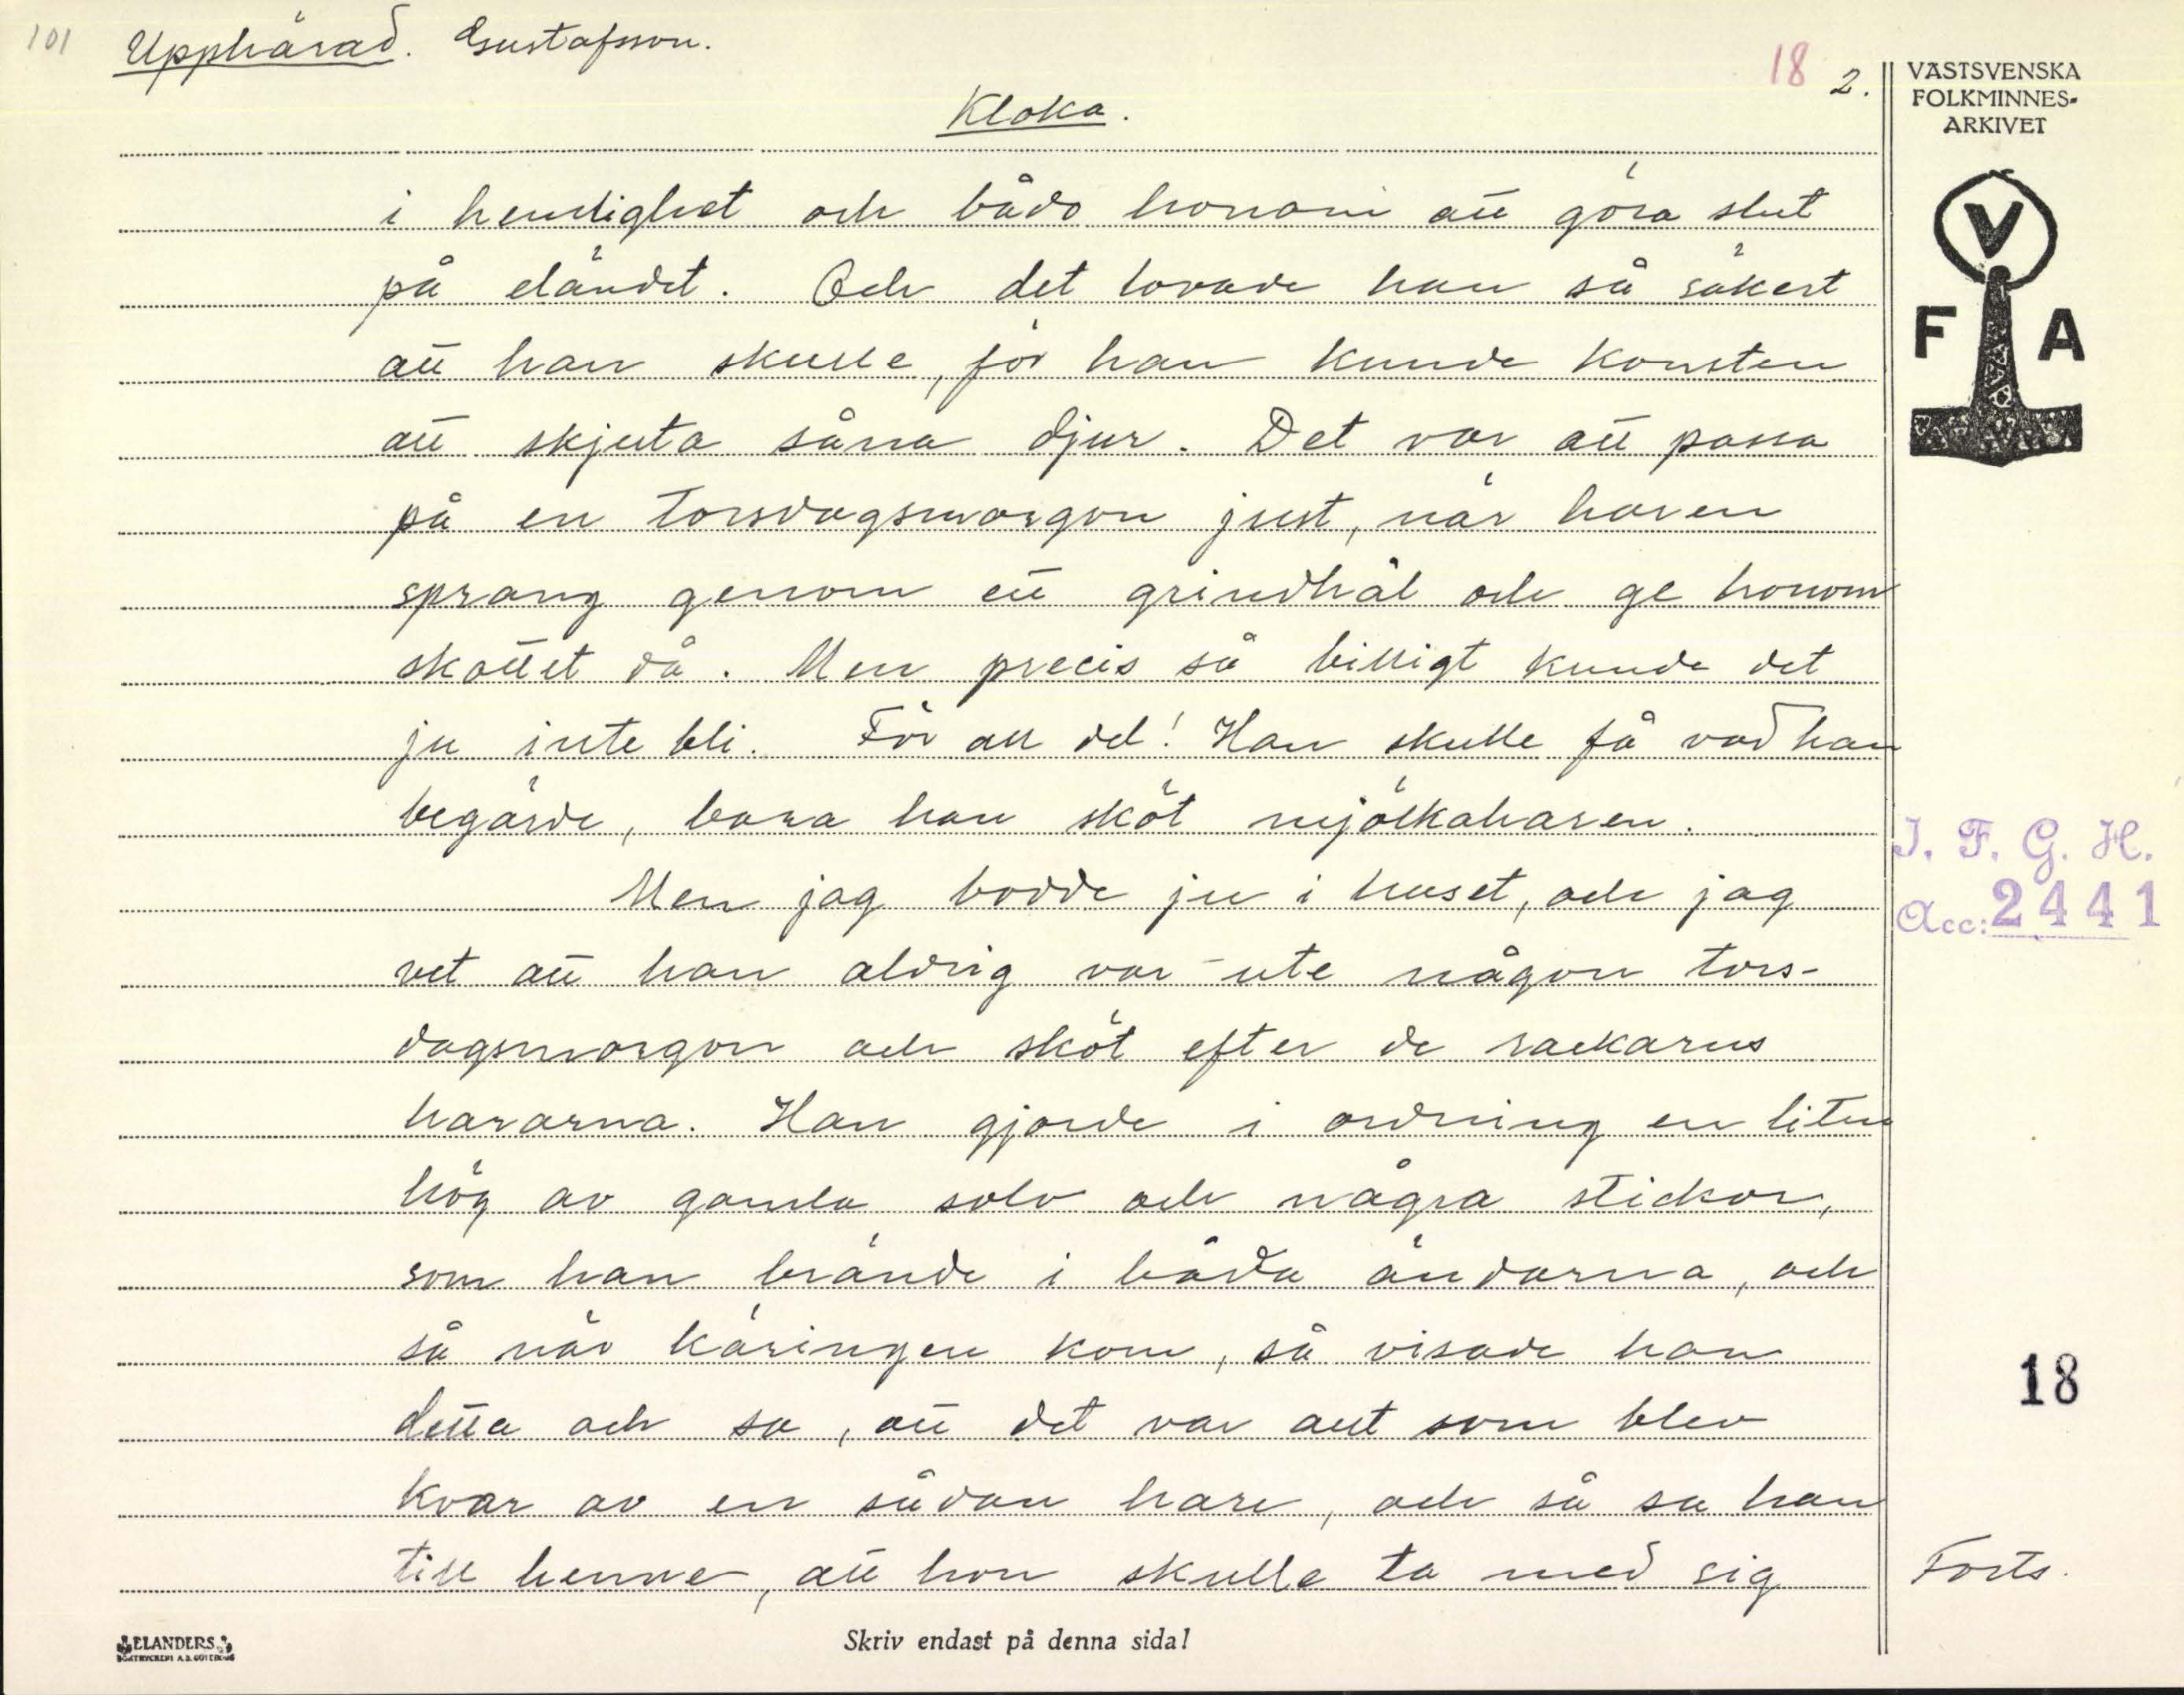 101 Upphärad. Gustafsson.
18 2.
Kloka.
VÄSTSVENSKA
FOLKMINNES-
ARKIVET
V
F A
i hemlighet och bådo honom att göra slut
på eländet. Och det lovade han så säkert
att han skulle, för han kunde konsten
att skjuta såna djur. Det var att passa
på en torsdagsmorgon just, när haren
sprang genom ett grindhål och ge honom
skottet då. Men precis så billigt kunde det
ju inte bli. För all del! Han skulle få vad han
begärde, bara han sköt mjölkaharen.
I. F. G. H.
Acc: 2441
Men jag bodde ju i huset, och jag
vet att han aldrig var ute någon tors-
dagsmorgon och sköt efter de rackarns
hararna. Han gjorde i ordning en liten
hög av gamla solv och några stickor,
som han brände i båda ändarna, och
så när käringen kom, så visade han
18
detta och sa, att det var allt som blev
kvar av en sådan hare, och så sa han
till henne, att hon skulle ta med sig
Forts.
ELANDERS
BOKTRYCKERI A.B. GÖTEBORG
Skriv endast på denna sida!